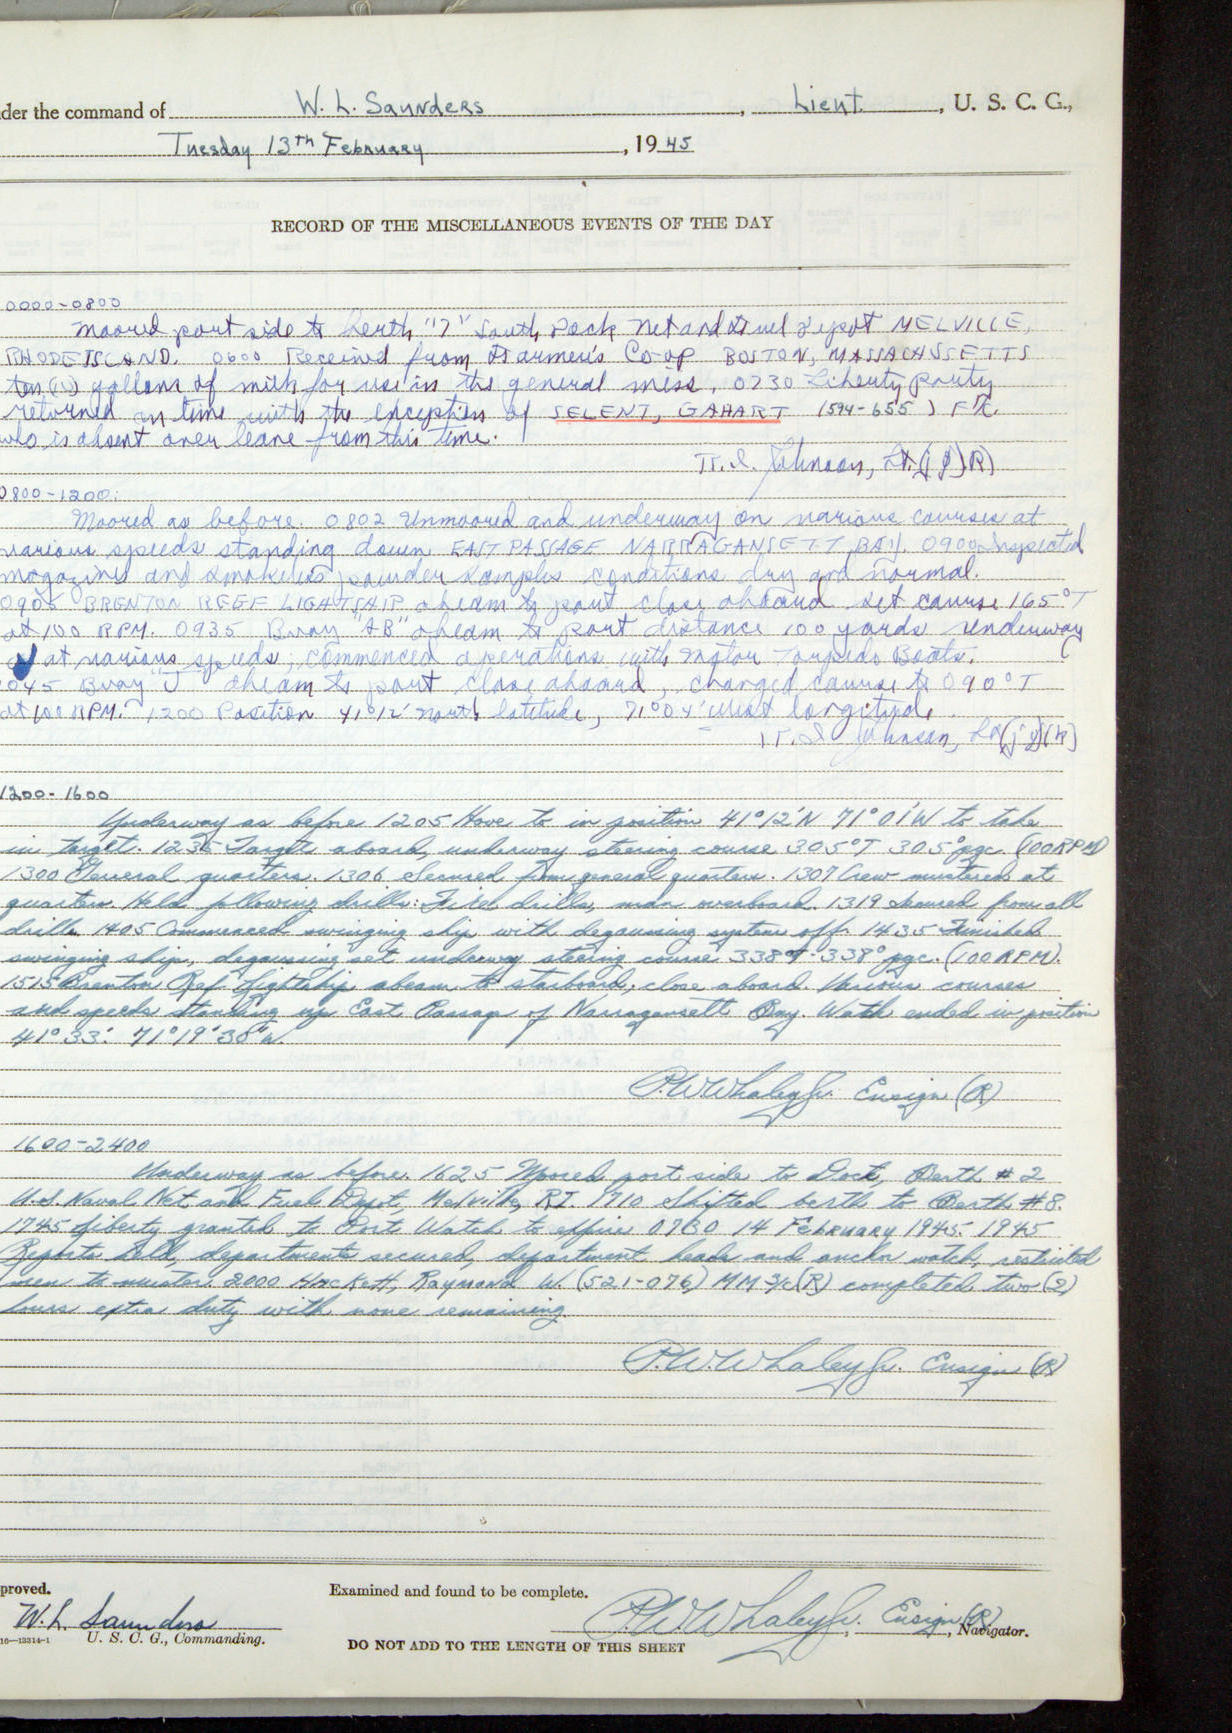 der the command of W. L. Saunders, Lieut., U. S. C. G.,
Tuesday 13th February, 1945
RECORD OF THE MISCELLANEOUS EVENTS OF THE DAY
0000-0800
Moored port side to berth "7" South Dock Net and Fuel Depot MELVILLE,
RHODE ISLAND. 0600 Received from Farmer's Co-op BOSTON, MASSACHSSETTS
ten (10) gallons of milk for use in the general mess. 0730 Liberty party
returned on time with the exception of SELENT, GAHART (594-655) F2/c.
who is absent over leave from this time.
Johnson, Lt.(jg)(R)
0800-1200:
Moored as before. 0802 Unmoored and underway on various courses at
various speeds standing down EAST PASSAGE NARRAGANSETT BAY. 0900 Inspected
magazines and smokeless powder samples conditions dry and normal.
0905 BRENTON REEF LIGHTSHIP abeam to port close aboard set course 165°T
at 100 RPM. 0935 Buoy "AB" abeam to port distance 100 yards underway
at various speeds; commenced operations with Motor Torpedo Boats.
1045 Buoy "J" abeam to port close aboard, changed course to 090°T
at 100 RPM. 1200 Position 41°12' north latitude, 71°04' west longitude.
Johnson, Lt(jg)(R)
1200-1600
Underway as before 1205 Hove to in position 41°12'N 71°01'W to take
in target. 1235 Targets aboard, underway steering course 305°T 305°pgc. (100RPM)
1300 General quarters. 1306 Secured from general quarters. 1307 Crew mustered at
quarters. Held following drills: Fire drills, man overboard. 1319 Secured from all
drills. 1405 Commenced swinging ship with degaussing system off. 1435 Finished
swinging ship, degaussing set underway steering course 338°T-338° pgc. (100 RPM).
1515 Brenton Ref Lightship abeam to starboard, close aboard. Various courses
and speeds standing up East Passage of Narragansett Bay. Watch ended in position
41°33'. 71°19'30"W.
P.W. Whaley Jr. Ensign (R)
1600-2400
Underway as before. 1625 Moored port side to Dock, Berth #2
U.S. Naval Net and Fuel Depot, Melville, RI. 1710 Shifted berth to Berth #8.
1745 Liberty granted to Port Watch to expire 0730 14 February 1945. 1945
Reports held, departments secured, department heads and anchor watch, restricted
men to muster. 2000 Hackett, Raymond W. (521-076) MM3/c(R) completed two (2)
hours extra duty with none remaining
P.W. Whaley Jr. Ensign (R)
proved.
Examined and found to be complete.
W. L. Saunders
U. S. C. G., Commanding.
P.W. Whaley Jr., Ensign (R), Navigator.
16—13314-1
DO NOT ADD TO THE LENGTH OF THIS SHEET